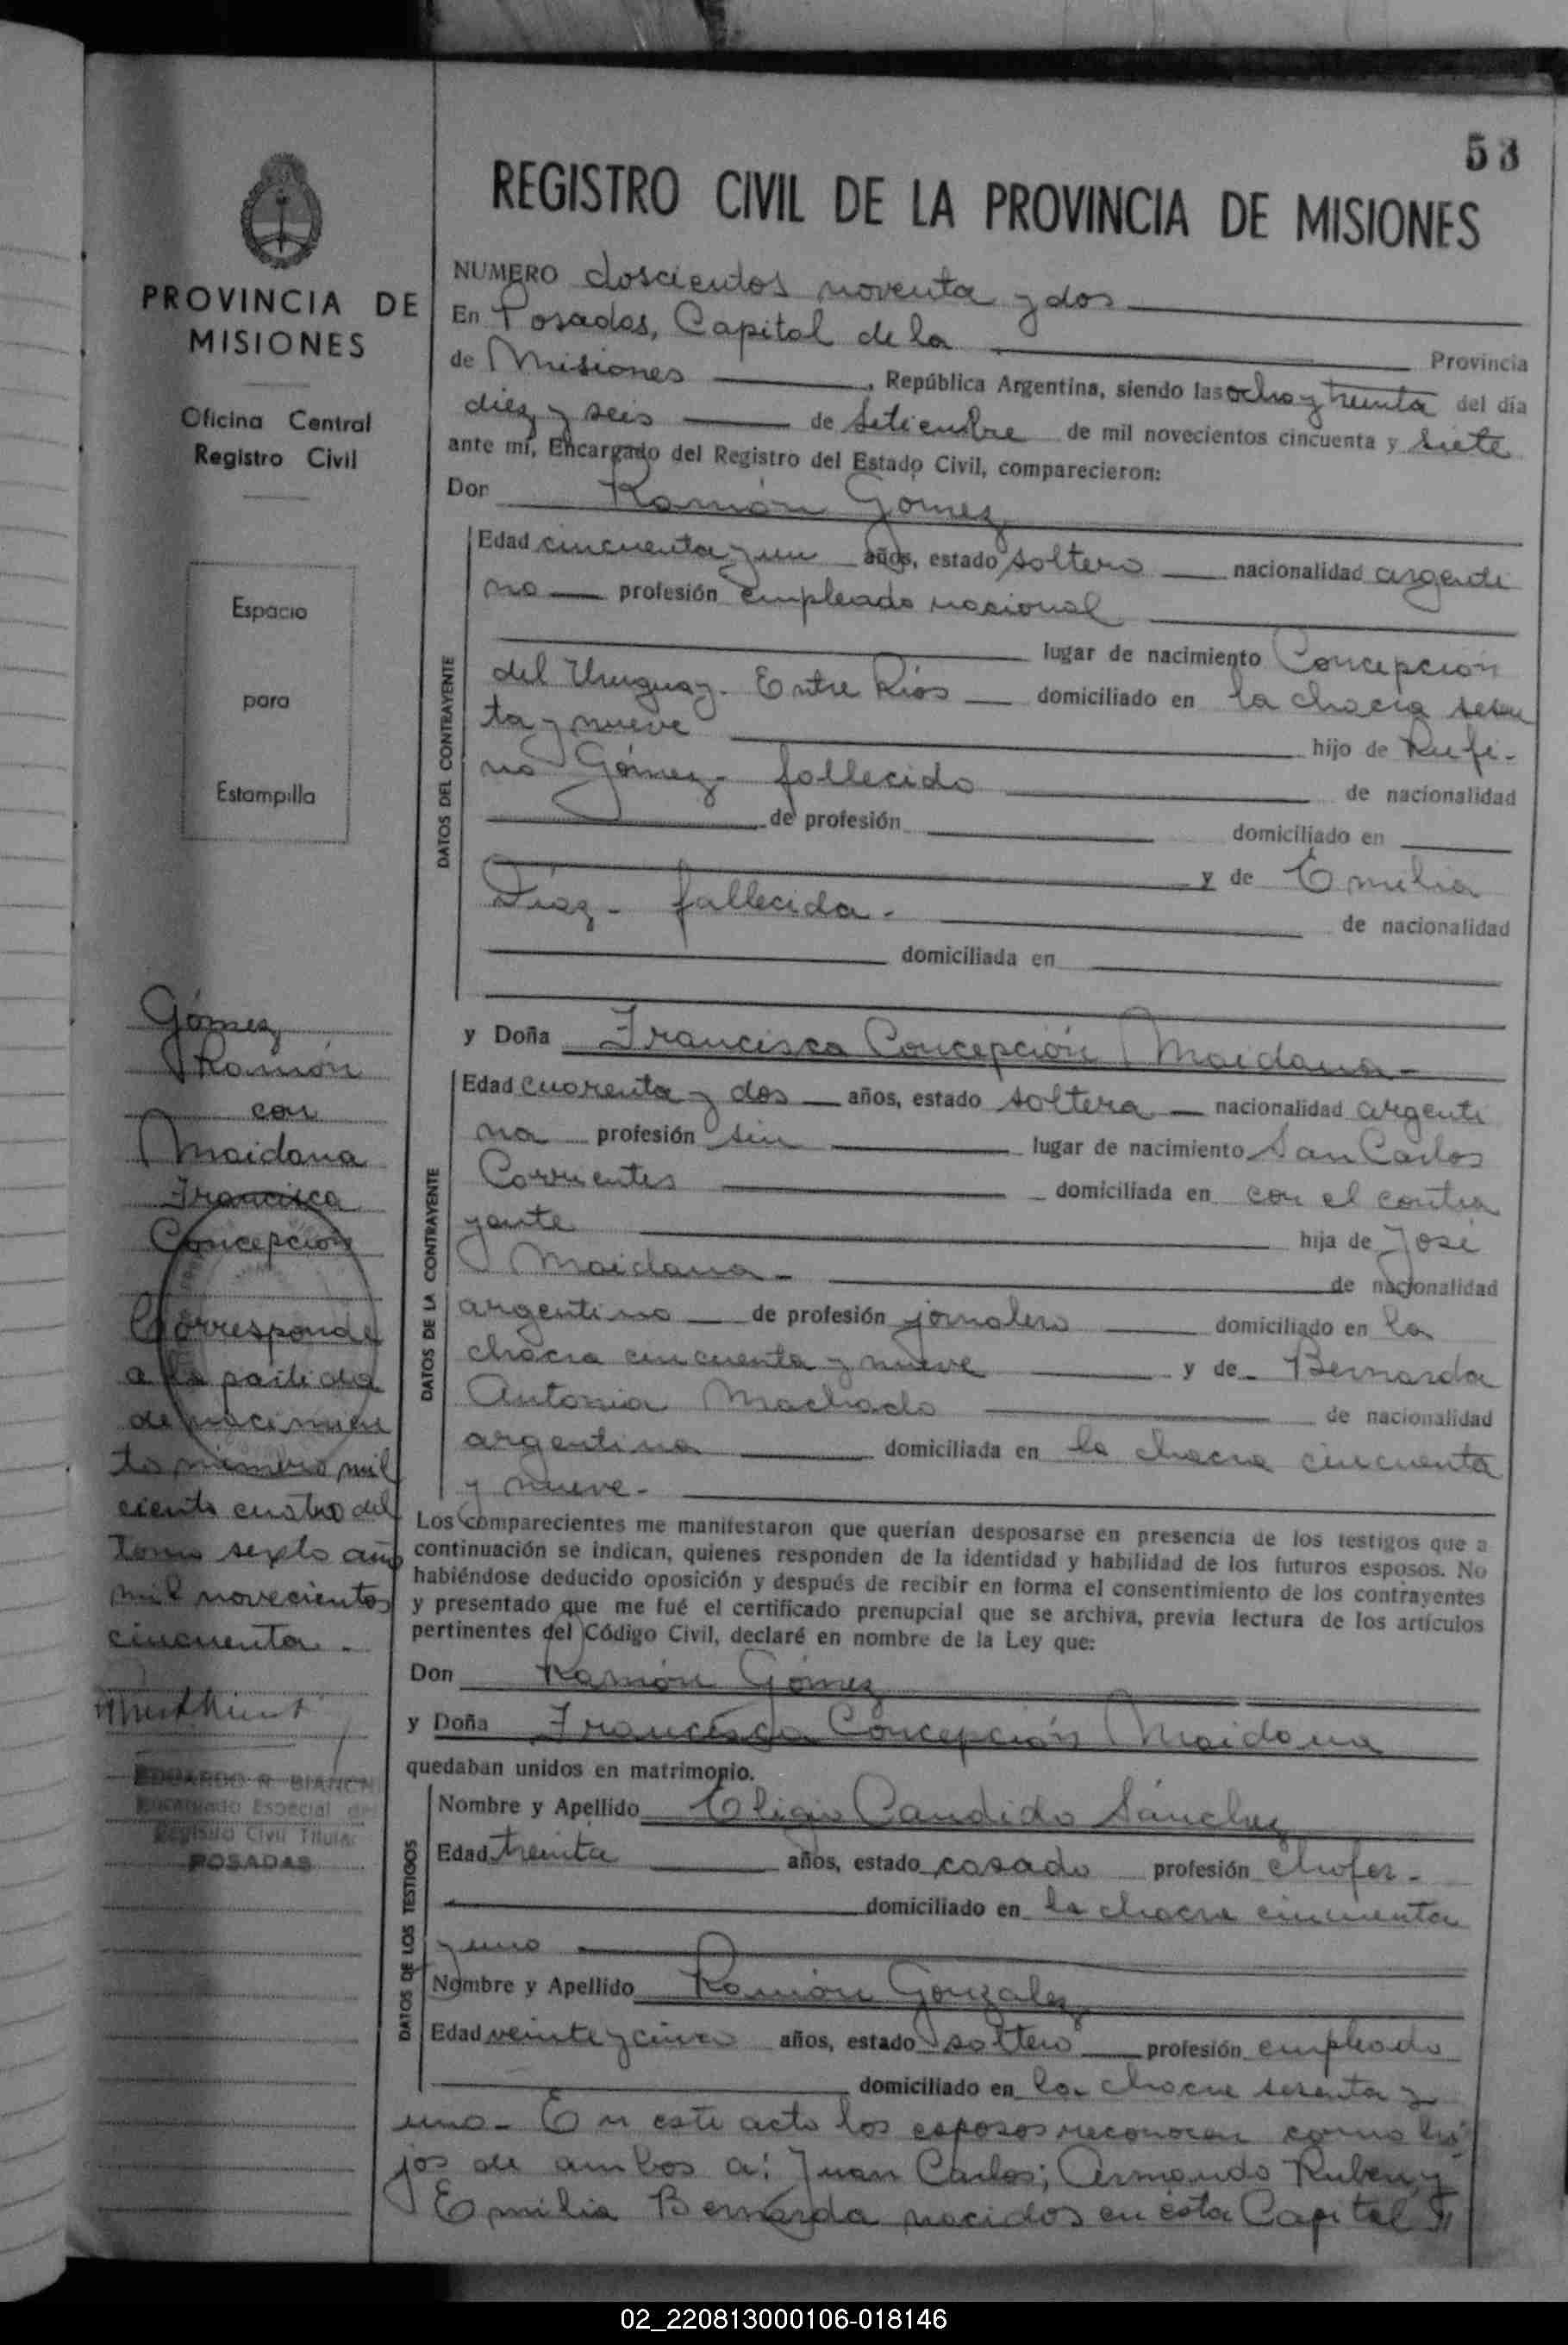 53
REGISTRO CIVIL DE LA PROVINCIA DE MISIONES
PROVINCIA DE
MISIONES
Oficina Central
Registro Civil
Espacio
para
Estampilla
Gómez
Ramón
con
Maidana
Francisca
Concepción
Corresponde
a la partida
de nacimien
to número mil
ciento cuatro del
Tomo sexto año
mil novecientos
cincuenta.
EDUARDO R. BIANCHI
Encargado Especial del
Registro Civil Titular
POSADAS
NUMERO doscientos noventa y dos
En Posadas, Capital de la Provincia
de Misiones, República Argentina, siendo las ocho y treinta del día
diez y seis de setiembre de mil novecientos cincuenta y siete
ante mí, Encargado del Registro del Estado Civil, comparecieron:
Don Ramón Gómez
DATOS DEL CONTRAYENTE
Edad cincuenta y un años, estado soltero nacionalidad argenti
no profesión empleado nacional
lugar de nacimiento Concepción
del Uruguay. Entre Ríos domiciliado en la chacra sesen
ta y nueve hijo de Rufi-
no Gómez- fallecido de nacionalidad
de profesión domiciliado en
y de Emilia
Díaz- fallecida- de nacionalidad
domiciliada en
y Doña Francisca Concepción Maidana-
DATOS DE LA CONTRAYENTE
Edad cuarenta y dos años, estado soltera nacionalidad argenti
na profesión sin lugar de nacimiento San Carlos
Corrientes domiciliada en con el contra
yente hija de José
Maidana- de nacionalidad
argentino de profesión jornalero domiciliado en la
chacra cincuenta y nueve y de Bernarda
Antonia Machado de nacionalidad
argentina domiciliada en la chacra cincuenta
y nueve-
Los comparecientes me manifestaron que querían desposarse en presencia de los testigos que a
continuación se indican, quienes responden de la identidad y habilidad de los futuros esposos. No
habiéndose deducido oposición y después de recibir en forma el consentimiento de los contrayentes
y presentado que me fué el certificado prenupcial que se archiva, previa lectura de los artículos
pertinentes del Código Civil, declaré en nombre de la Ley que:
Don Ramón Gómez
y Doña Francisca Concepción Maidana
quedaban unidos en matrimonio.
DATOS DE LOS TESTIGOS
Nombre y Apellido Eligio Candido Sánchez
Edad treinta años, estado casado profesión chofer-
domiciliado en la chacra cincuenta
y uno
Nombre y Apellido Ramón Gonzalez
Edad veinte y cinco años, estado soltero profesión empleado
domiciliado en la chacra sesenta y
uno- En este acto los esposos reconocen como hi
jos de ambos a: Juan Carlos; Armando Ruben, y
Emilia Bernarda nacidos en ésta Capital
02_220813000106-018146